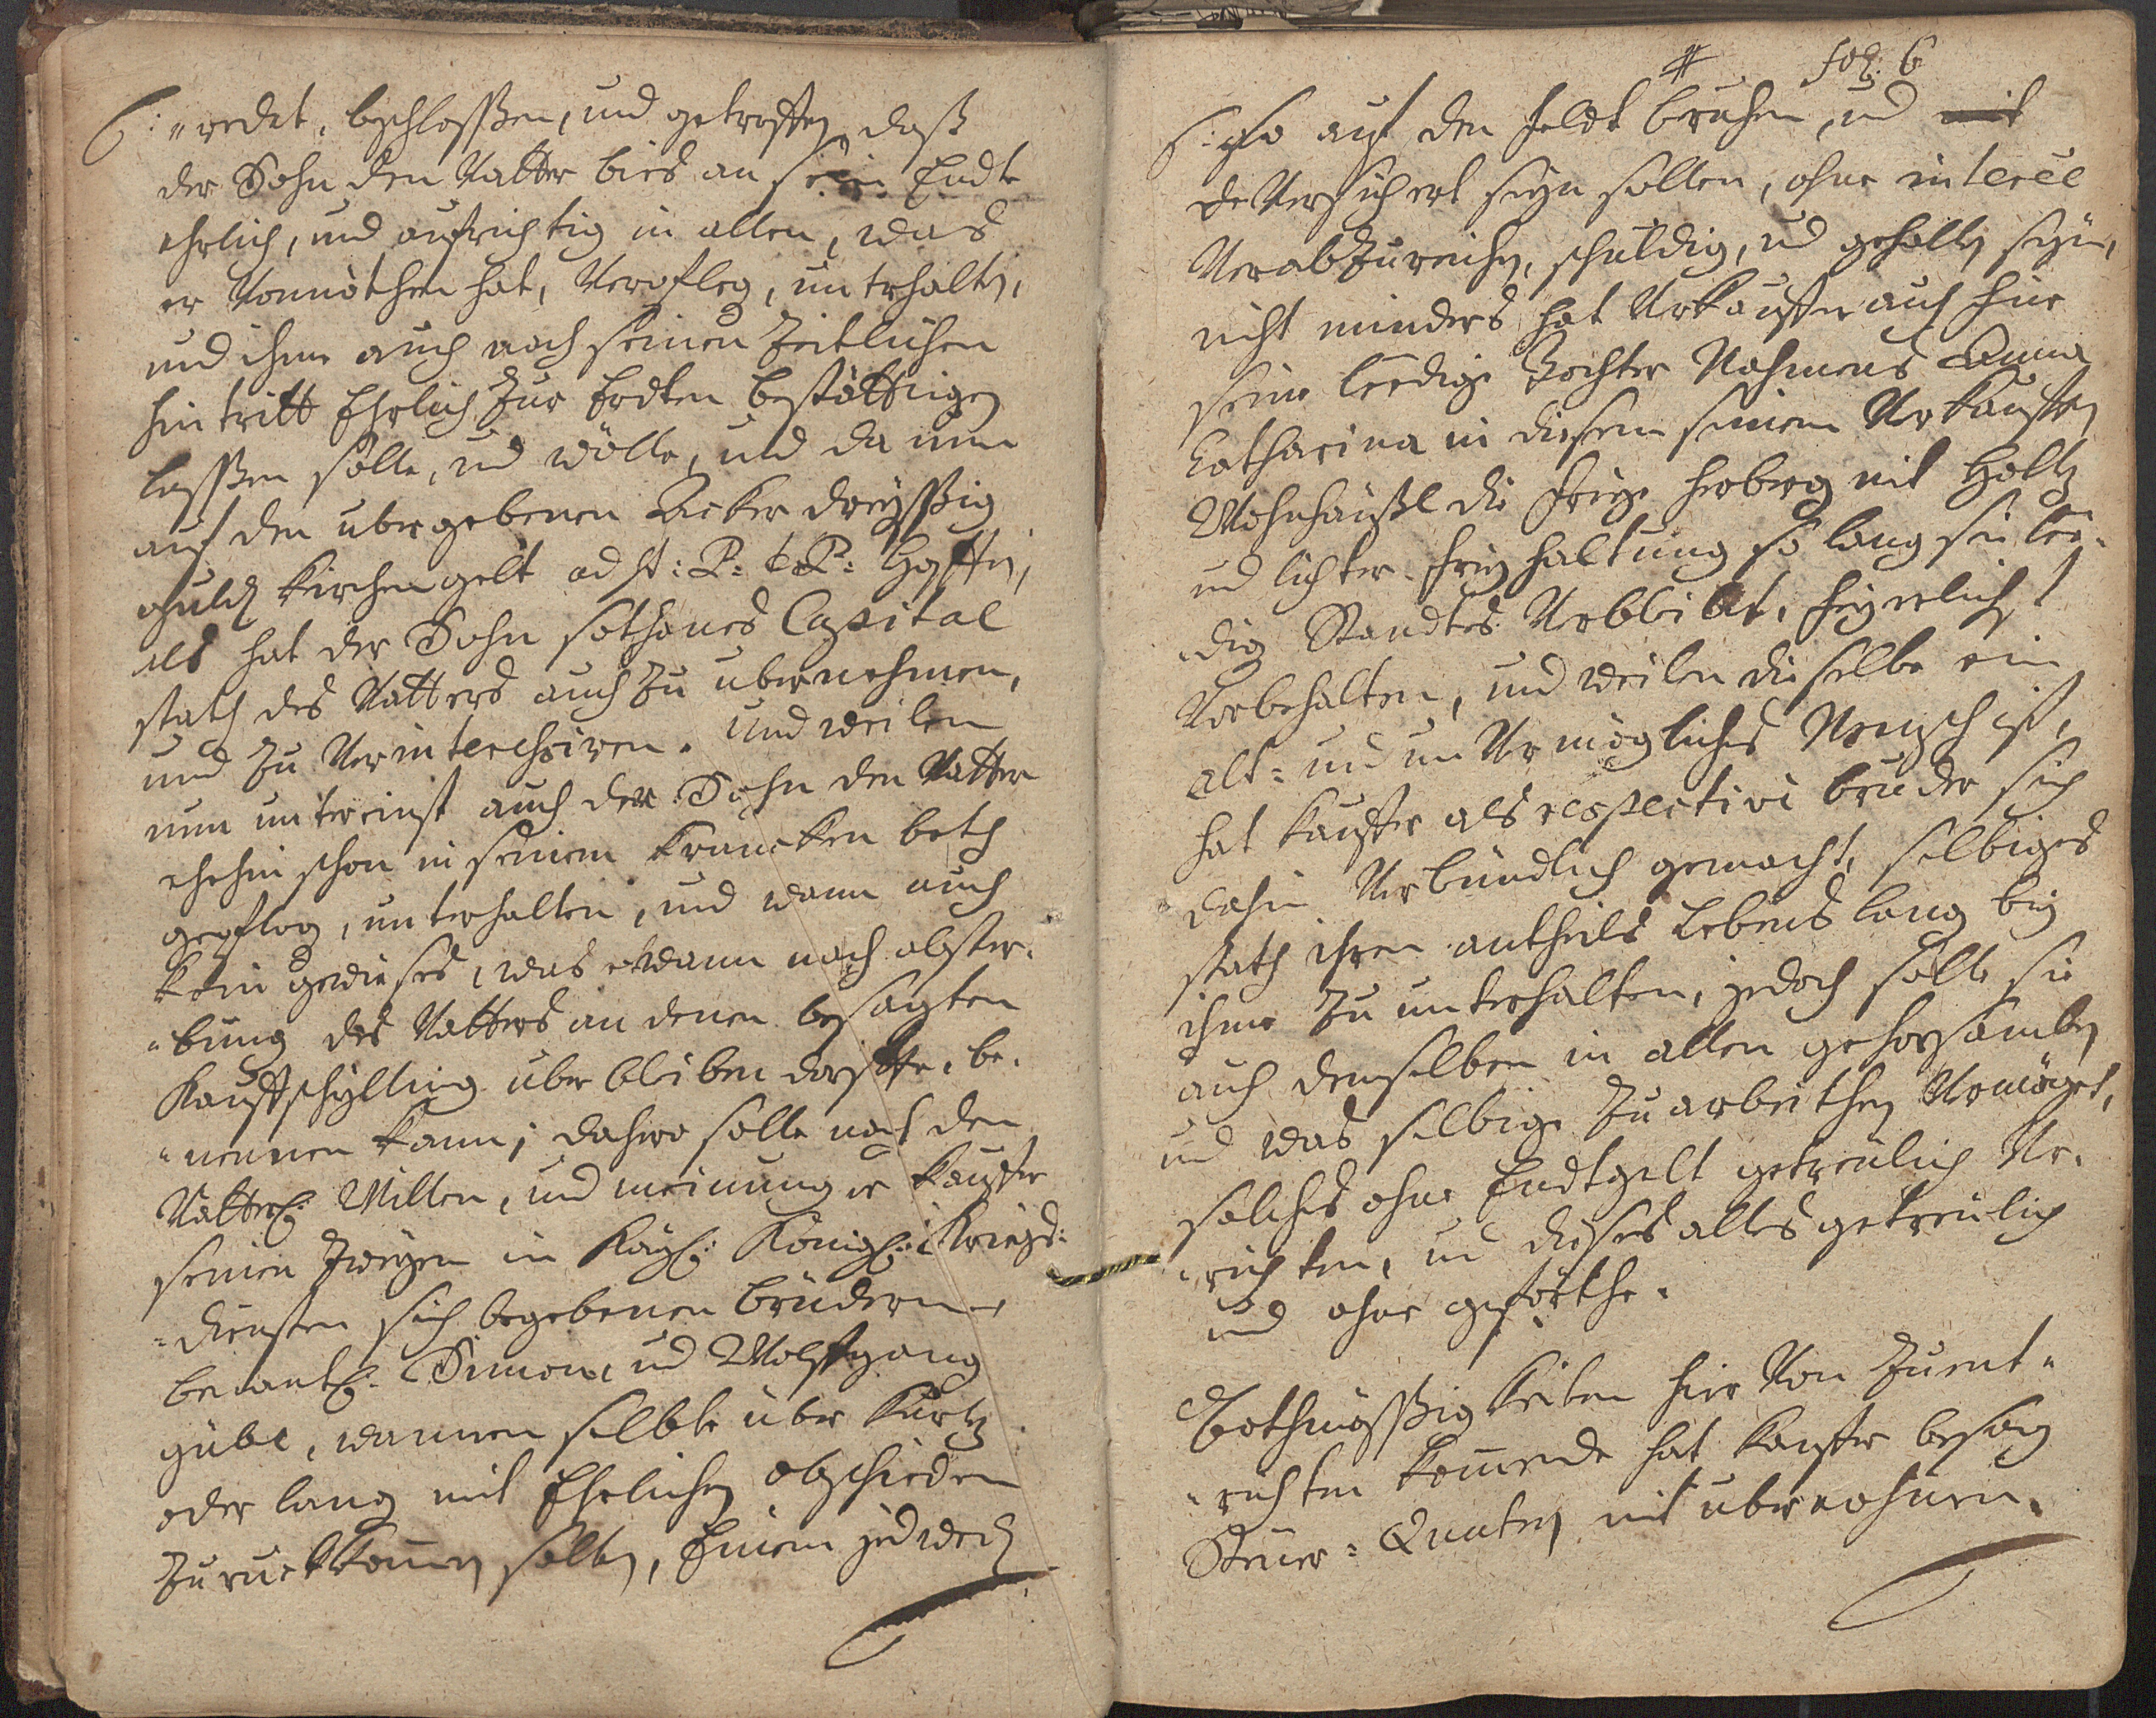 6: „redet, beschlossen, und getroffen, daß
der Sohn den Vatter bies an sein Endte
ehrlich, und aufrichtig in allen, was
er Vonnöthen hat, Verpfleg, unterhalten,
und ihme auch nach seinen Zeitlichen
hintritt Ehrlich Zur Erdten bestättigen
lassen solle, und wölle, und da nun
auf den ubergebenen Acker dreyssig
guld kirchengelt ad St: P: et P:
als hat der Sohn sothanes Capital
stath des Vatters auch Zu ubernehmen,
und Zu Verinteressiren. Und weilen
nun untereinst auch der Sohn den Vatter
ehehin schon in seinem krancken beth
gepfleg, unterhalten, und wann auch
kein gewieses, was etwann nach abster„
„bung des Vatters an denen besagten
Kauffschylling uber bleiben derffte, be„
„nennen kann; dahero solle nach den
Vätterl: Willen, und meinung er kauffer
seinen Zweyen in Kayl: Königl: Kriegs„
„diensten sich begebenen brüdern
benantl: Simon, und Wolffgang
gübl, wannen selbte über kurtz
oder lang mit Ehrlichen abschieden
Zuruckkomen solten, Einem jedweden
fol: 6
6: so auf den feldt bruhen, und mit
de Versichert seyn sollen, ohne interee
Verabzureichen, schuldig, und gehalten seyn,
nicht minders hat Verkauffer auch für
seine leedige Tochter Nahmens Anna
Catharina in diesem seinem Verkaufften
Wohnhäußl die freye herberg mit Holtz
und lichter freyhaltung so lang sie lee„
„dig Standtes Verbleibt, feyerlichst
Vorbehalten, und weilen dieselbe ein
alt= und unVermögliches Mensch ist,
hat kauffer als respective bruder sich
dahin Verbündlich gemacht, selbiges
stath ihren antheils Lebens lang bey
ihme Zu unterhalten, jedoch solle sie
auch demselben in allen gehorsamben
und was selbige Zu arbeithen Vermöget,
solches ohne Endtgelt getreulich Ver„
„richten, und dieses alles getreulich
und ohne geförthe.
Bothmässigkeiten hier Von Zuent„
„richten komende hat kauffer besag
Steuer= Quaten mit ubernohmen.